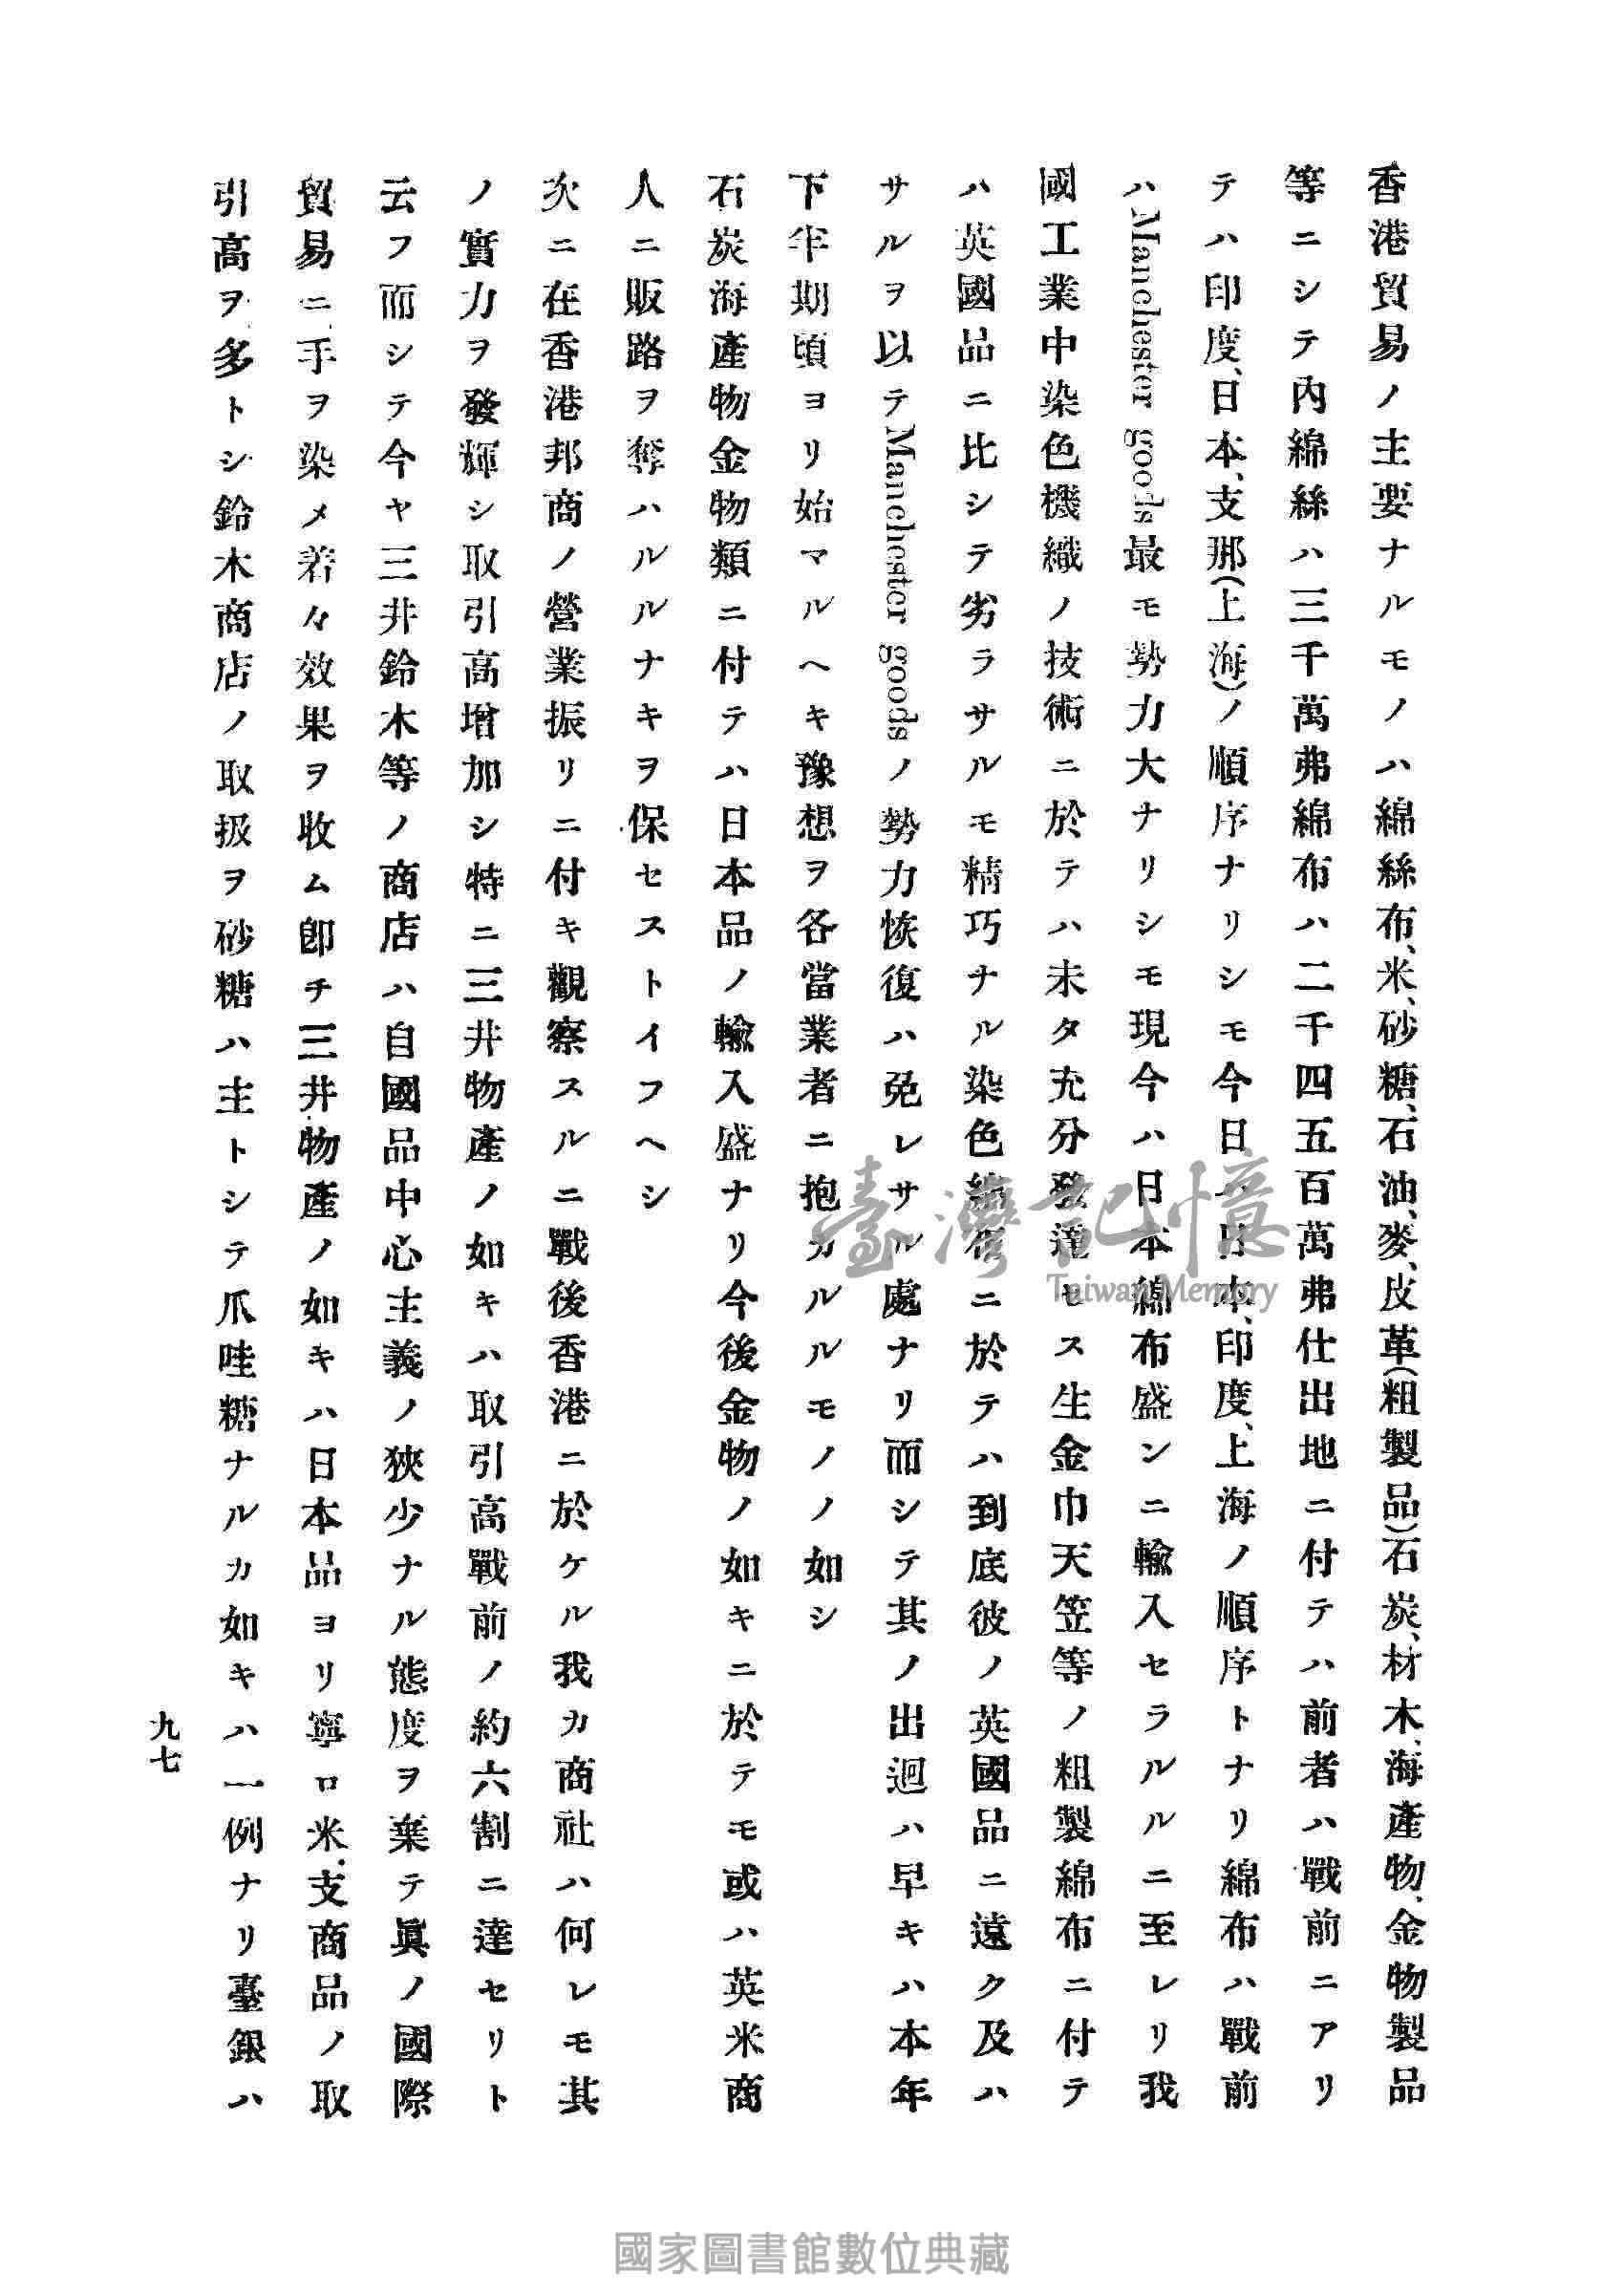 香港貿易ノ主要ナルモノハ綿絲布、米、砂糖、石油、麥、皮革(粗製品)石炭、材木、海產物、金物製品
等ニシテ內綿絲ハ三千萬弗綿布ハ二千四五百萬弗仕出地ニ付テハ前者ハ戰前ニアリ
テハ印度、日本、支那(上海)ノ順序ナリシモ今日ハ日本、印度、上海ノ順序トナリ綿布ハ戰前
ハManchester goods最モ勢力大ナリシモ現今ハ日本綿布盛ンニ輸入セラルルニ至レリ我
國工業中染色機織ノ技術ニ於テハ未タ充分發達セス生金巾天笠等ノ粗製綿布ニ付テ
ハ英國品ニ比シテ劣ラサルモ精巧ナル染色綿布ニ於テハ到底彼ノ英國品ニ遠ク及ハ
サルヲ以テManchester goodsノ勢力恢復ハ免レサル處ナリ而シテ其ノ出迴ハ早キハ本年
下半期頃ヨリ始マルヘキ豫想ヲ各當業者ニ抱カルルモノノ如シ
石炭海產物金物類ニ付テハ日本品ノ輸入盛ナリ今後金物ノ如キニ於テモ或ハ英米商
人ニ販路ヲ奪ハルルナキヲ保セストイフヘシ
次ニ在香港邦商ノ營業振リニ付キ觀察スルニ戰後香港ニ於ケル我カ商社ハ何レモ其
ノ實力ヲ發輝シ取引高增加シ特ニ三井物產ノ如キハ取引高戰前ノ約六割ニ達セリト
云フ而シテ今ヤ三井鈴木等ノ商店ハ自國品中心主義ノ狹少ナル態度ヲ棄テ眞ノ國際
貿易ニ手ヲ染メ着々效果ヲ收ム卽チ三井物產ノ如キハ日本品ヨリ寧ロ米、支商品ノ取
引高ヲ多トシ鈴木商店ノ取扱ヲ砂糖ハ主トシテ爪哇糖ナルカ如キハ一例ナリ臺銀ハ
九七
臺灣記憶
Taiwan Memory
國家圖書館數位典藏